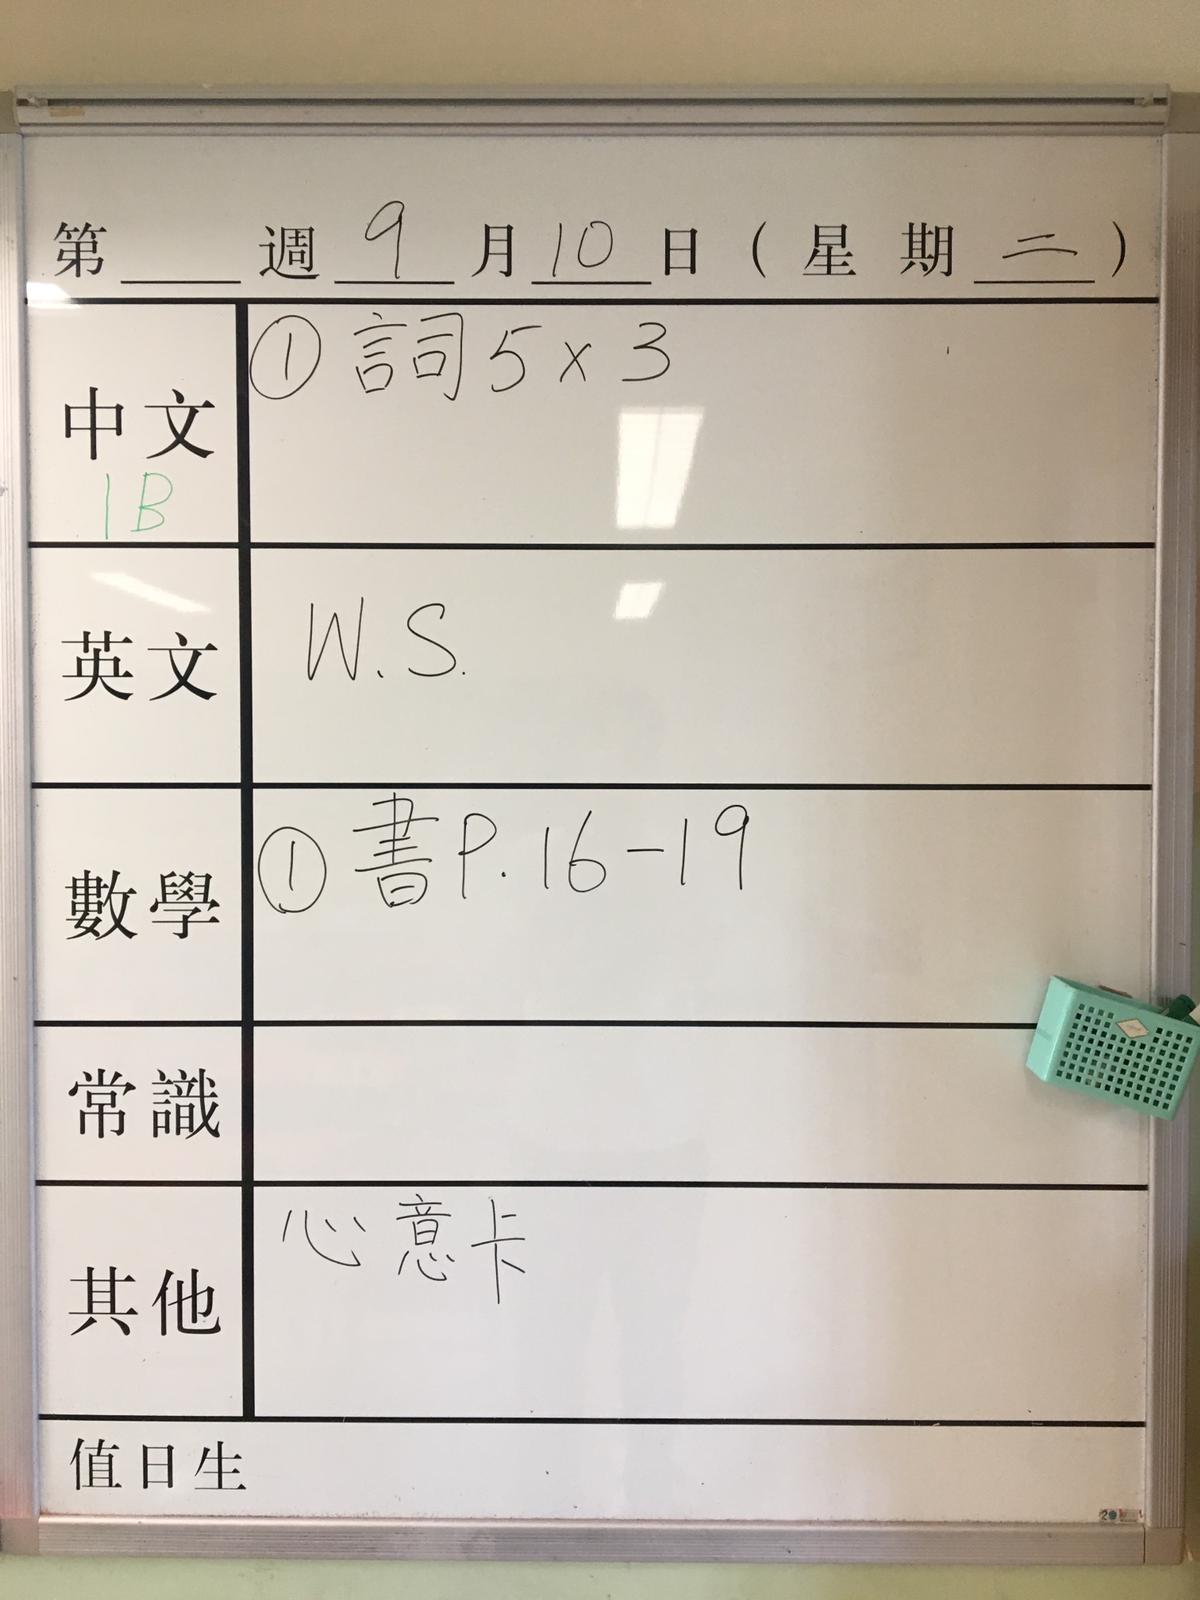 第 週 9 月 10 日 ( 星 期 二 )
中文 ① 詞5x3
1B
英文 W.S.
數學 ① 書P.16-19
常識
其他 心意卡
值日生